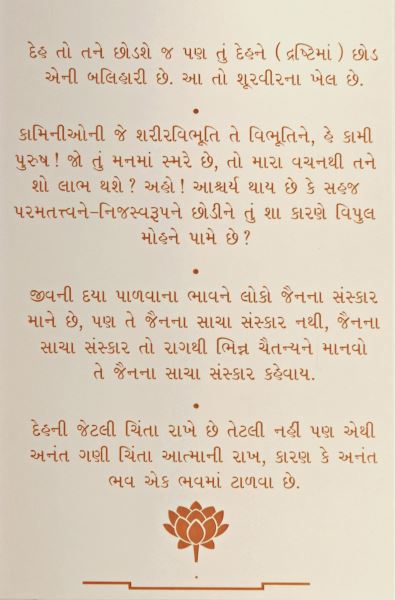 દેહ તો તને છોડશે જ પણ તું દેહને ( દ્રષ્ટિમાં ) છોડ
એની બલિહારી છે. આ તો શૂરવીરના ખેલ છે.
•
કામિનીઓની જે શરીરવિભૂતિ તે વિભૂતિને, હે કામી
પુરુષ ! જો તું મનમાં સ્મરે છે, તો મારા વચનથી તને
શો લાભ થશે ? અહો ! આશ્ચર્ય થાય છે કે સહજ
પરમતત્ત્વને–નિજસ્વરૂપને છોડીને તું શા કારણે વિપુલ
મોહને પામે છે ?
•
જીવની દયા પાળવાના ભાવને લોકો જૈનના સંસ્કાર
માને છે, પણ તે જૈનના સાચા સંસ્કાર નથી, જૈનના
સાચા સંસ્કાર તો રાગથી ભિન્ન ચૈતન્યને માનવો
તે જૈનના સાચા સંસ્કાર કહેવાય.
•
દેહની જેટલી ચિંતા રાખે છે તેટલી નહીં પણ એથી
અનંત ગણી ચિંતા આત્માની રાખ, કારણ કે અનંત
ભવ એક ભવમાં ટાળવા છે.